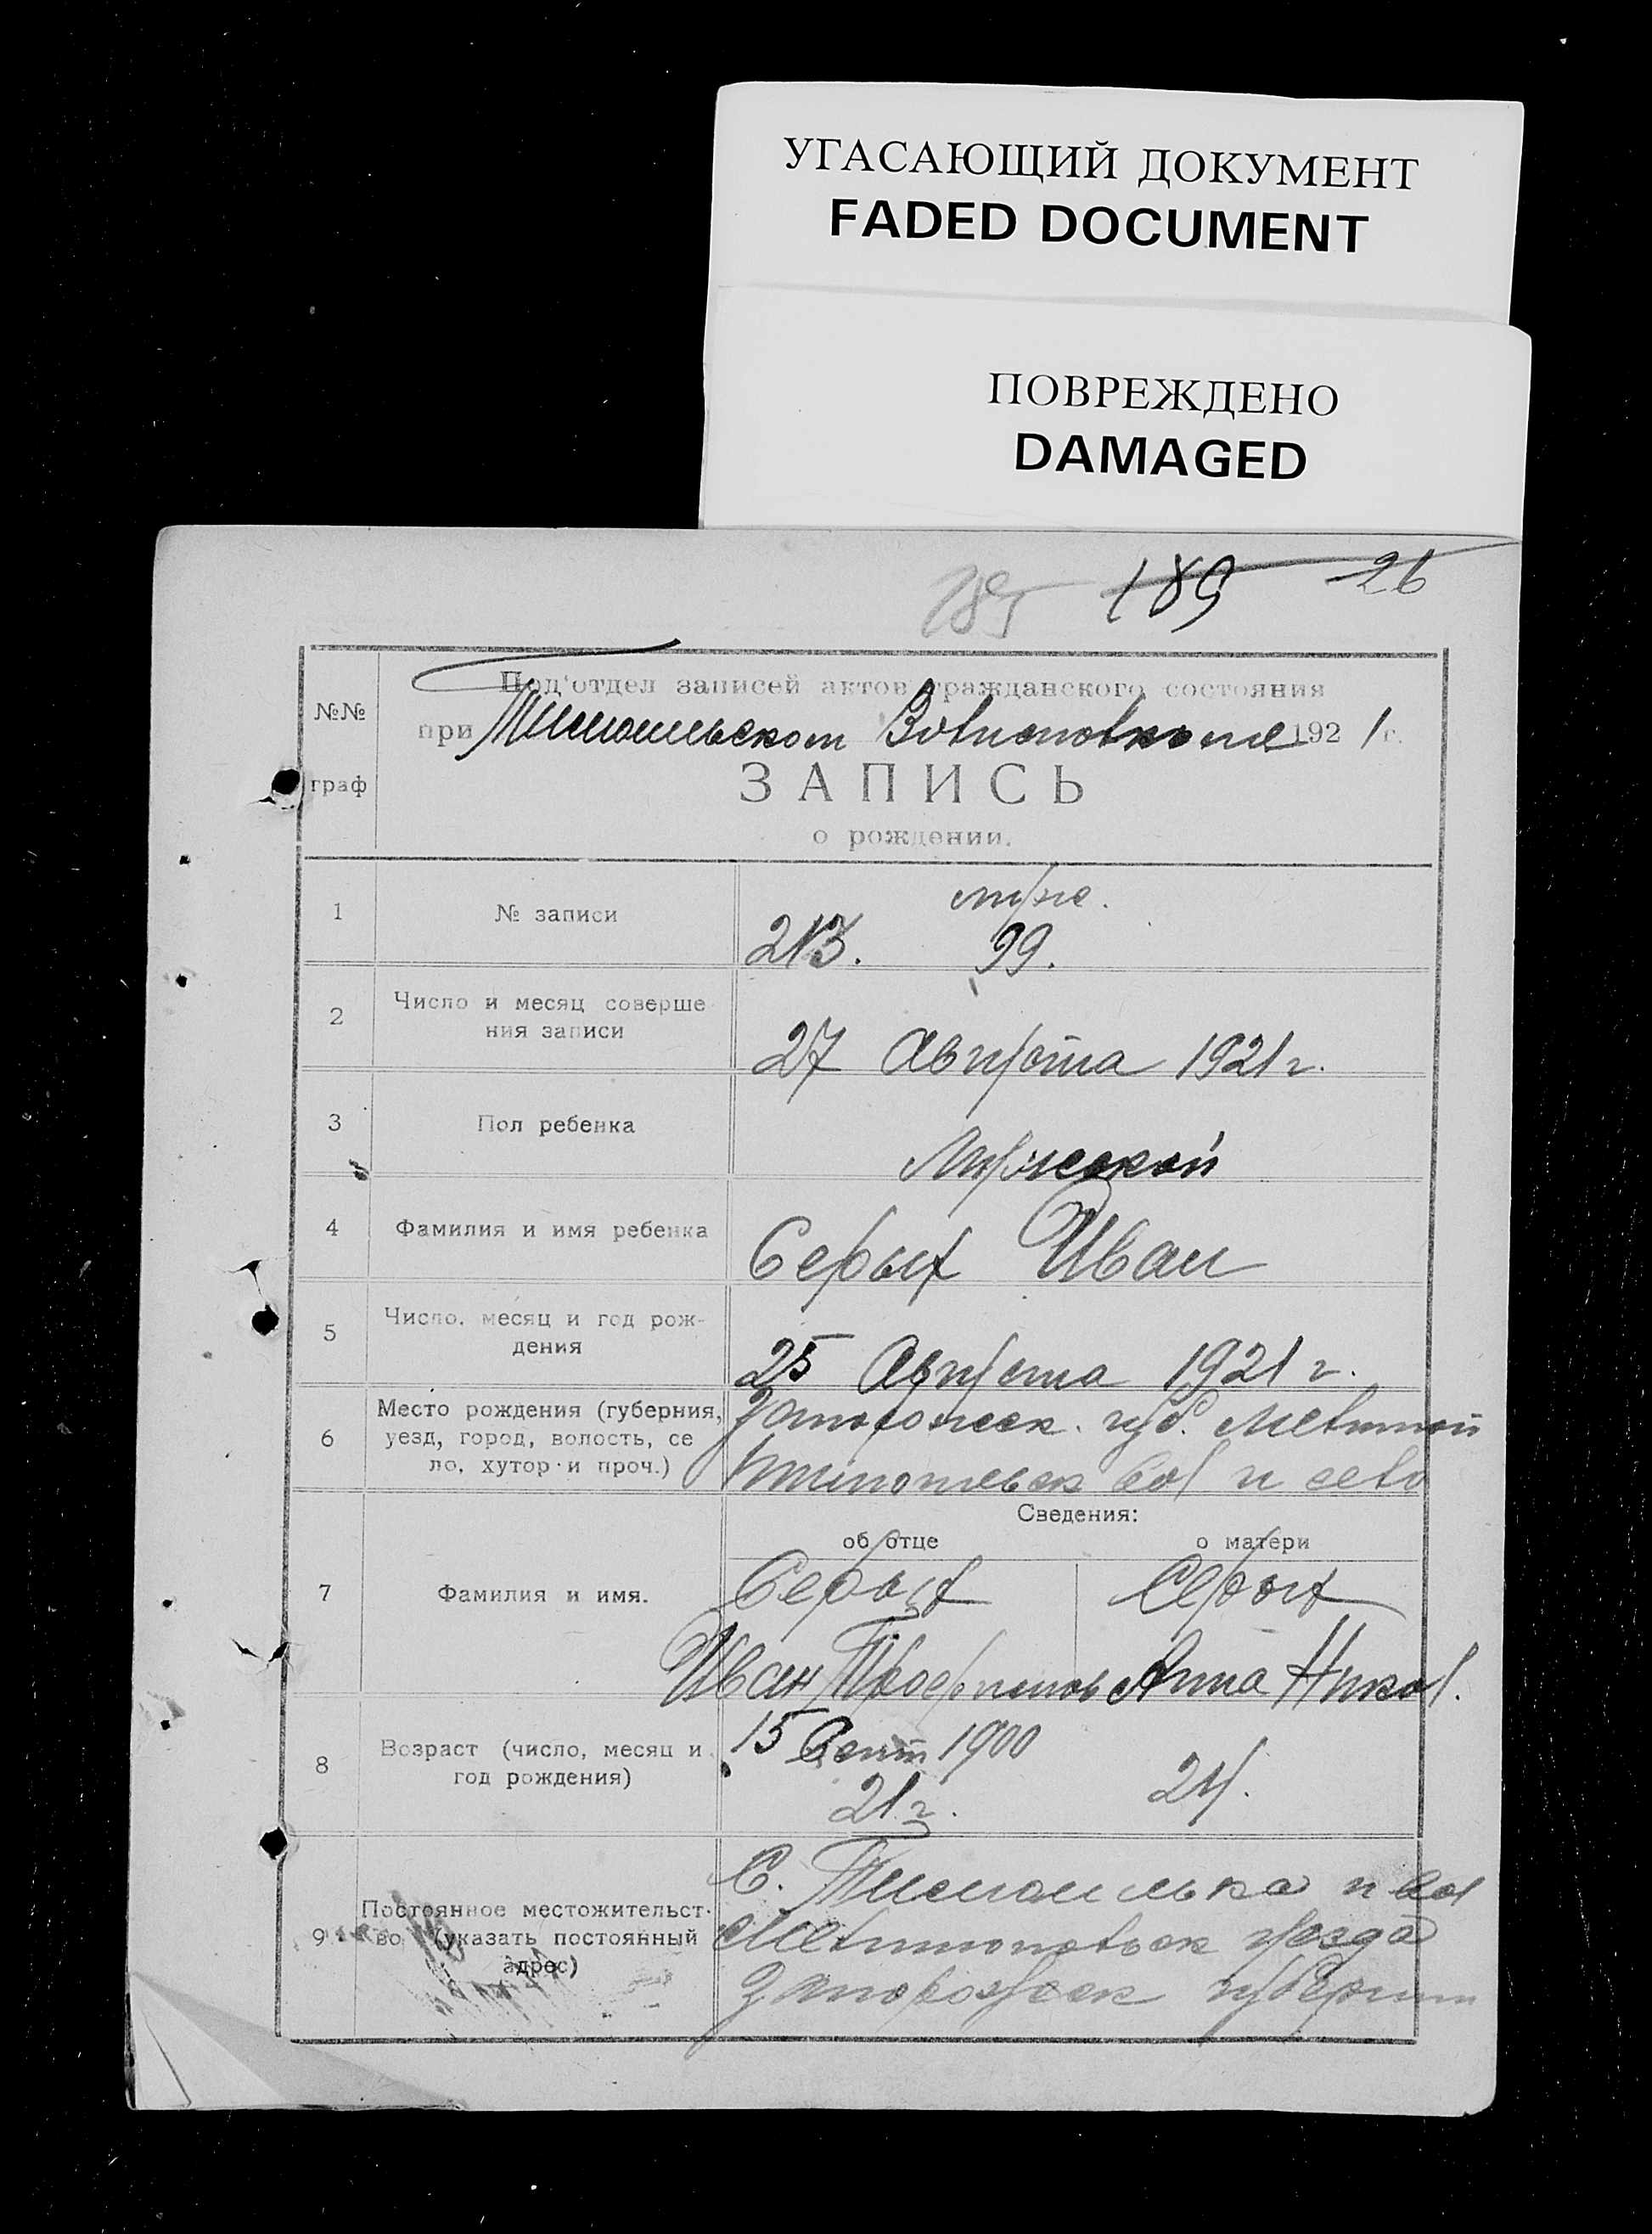 УГАСАЮЩИЙ ДОКУМЕНТ
FADED DOCUMENT
ПОВРЕЖДЕНО
DAMAGED
185 189 26
№№ граф
Под'отдел записей актов гражданского состояния
при Волисполкоме 1921 г.
ЗАПИСЬ
о рождении.
1 № записи 213. муж. 99.
2 Число и месяц соверше
ния записи
27 Августа 1921 г.
3 Пол ребенка Мужской
4 Фамилия и имя ребенка Серых Иван
5 Число, месяц и год рож-
дения
25 Августа 1921 г.
6 Место рождения (губерния,
уезд, город, волость, се
ло, хутор и проч.)
Запорожск. губ. Мелитоп
вол и село
Сведения:
об отце о матери
7 Фамилия и имя. Серых Серых
Иван Анна Никол.
8 Возраст (число, месяц и
год рождения)
15 Сент 1900
21 г. 24.
9 Постоянное местожительст-
во (указать постоянный
адрес)
С. и вол
Мелитопольск уезда
Запорожск губернии